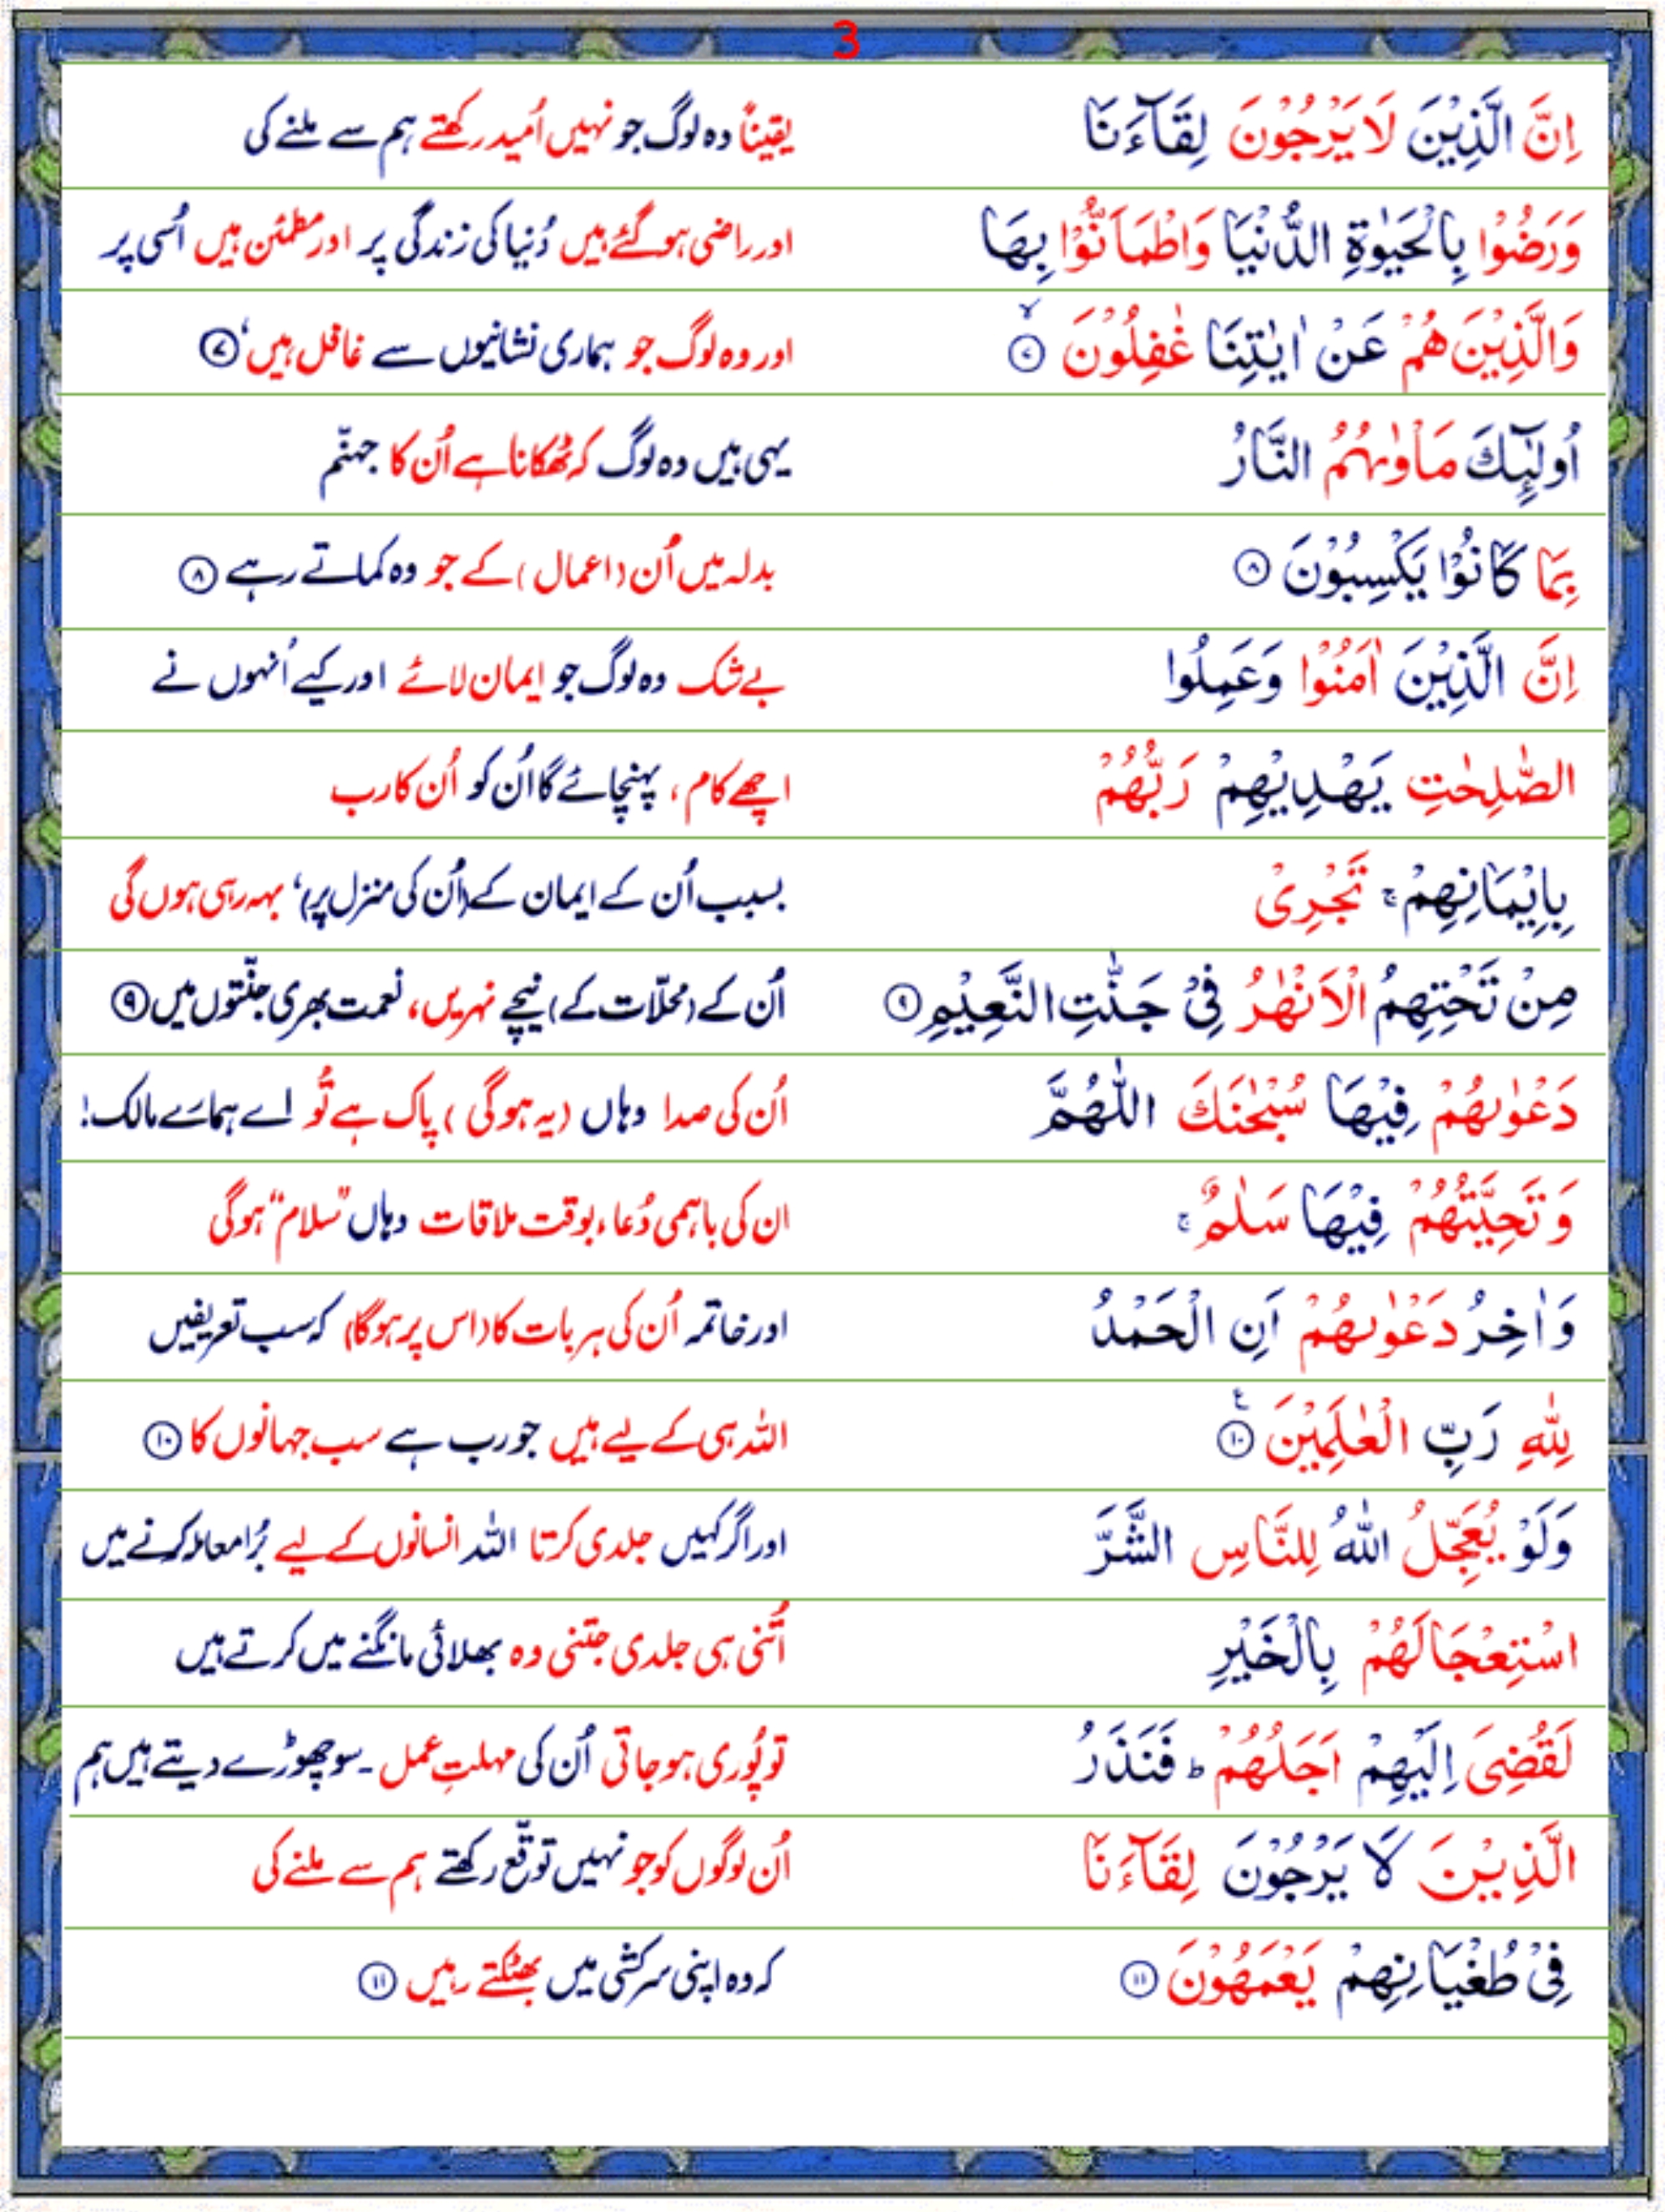 3
اِنَّ الَّذِيْنَ لَا يَرْجُوْنَ لِقَآءَنَا یقیناً وہ لوگ جو نہیں اُمید رکھتے ہم سے ملنے کی
وَرَضُوْا بِالْحَيٰوةِ الدُّنْيَا وَاطْمَاَنُّوْا بِهَا اور راضی ہو گئے ہیں دُنیا کی زندگی پر اور مطمئن ہیں اُسی پر
وَالَّذِيْنَ هُمْ عَنْ اٰيٰتِنَا غٰفِلُوْنَ ۙ‏﴿۷﴾ اور وہ لوگ جو ہماری نشانیوں سے غافل ہیں، ﴿۷﴾
اُولٰٓئِكَ مَاْوٰىهُمُ النَّارُ یہی ہیں وہ لوگ کہ ٹھکانا ہے اُن کا جہنّم
بِمَا كَانُوْا يَكْسِبُوْنَ ﴿۸﴾ بدلہ میں اُن (اعمال) کے جو وہ کماتے رہے ﴿۸﴾
اِنَّ الَّذِيْنَ اٰمَنُوْا وَعَمِلُوا بے شک وہ لوگ جو ایمان لائے اور کیے اُنہوں نے
الصّٰلِحٰتِ يَهْدِيْهِمْ رَبُّهُمْ اچھے کام، پہنچائے گا اُن کو اُن کا رب
بِاِيْمَانِهِمْ ۚ تَجْرِىْ بسبب اُن کے ایمان کے (اُن کی منزل پر)، بہہ رہی ہوں گی
مِنْ تَحْتِهِمُ الْاَنْهٰرُ فِىْ جَنّٰتِ النَّعِيْمِ ﴿۹﴾ اُن کے (محلّات کے) نیچے نہریں، نعمت بھری جنّتوں میں ﴿۹﴾
دَعْوٰىهُمْ فِيْهَا سُبْحٰنَكَ اللّٰهُمَّ اُن کی صدا وہاں (یہ ہو گی) پاک ہے تُو اے ہمارے مالک!
وَتَحِيَّتُهُمْ فِيْهَا سَلٰمٌ ۚ ان کی باہمی دُعا، بوقت ملاقات وہاں ”سلام“ ہوگی
وَاٰخِرُ دَعْوٰىهُمْ اَنِ الْحَمْدُ اور خاتمہ اُن کی ہر بات کا (اس پر ہوگا) کہ سب تعریفیں
لِلّٰهِ رَبِّ الْعٰلَمِيْنَ ﴿۱۰﴾ ع اللہ ہی کے لیے ہیں جو رب ہے سب جہانوں کا ﴿۱۰﴾
وَلَوْ يُعَجِّلُ اللّٰهُ لِلنَّاسِ الشَّرَّ اور اگر کہیں جلدی کرتا اللہ انسانوں کے لیے بُرا معاملہ کرنے میں
اسْتِعْجَالَهُمْ بِالْخَيْرِ اُتنی ہی جلدی جتنی وہ بھلائی مانگنے میں کرتے ہیں
لَقُضِىَ اِلَيْهِمْ اَجَلُهُمْ ؕ فَنَذَرُ تو پُوری ہو جاتی اُن کی مہلتِ عمل۔ سو چھوڑے دیتے ہیں ہم
الَّذِيْنَ لَا يَرْجُوْنَ لِقَآءَنَا اُن لوگوں کو جو نہیں توقّع رکھتے ہم سے ملنے کی
فِىْ طُغْيَانِهِمْ يَعْمَهُوْنَ ﴿۱۱﴾ کہ وہ اپنی سرکشی میں بھٹکتے رہیں ﴿۱۱﴾